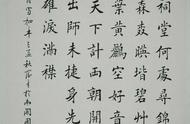 祠堂何處尋錦
森森暎堦碧草
葉黃鸝空好音
天下計兩朝開
出師未捷身先
雄淚滿襟